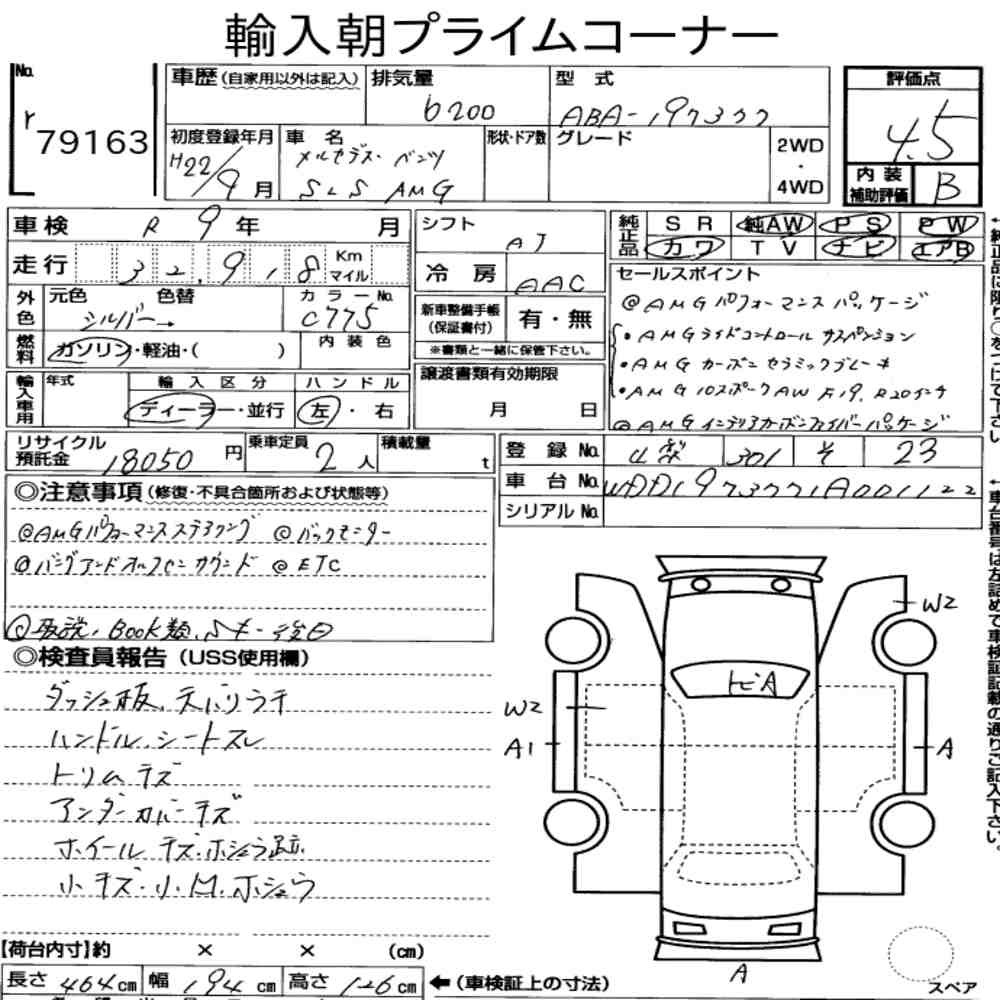 輸入朝プライムコーナー
No.
r
79163
車歴（自家用以外は記入）
排気量
6200
型式
ABA-197377
評価点
4.5
内装
補助評価
B
初度登録年月
H22/9月
車名
メルセデス・ベンツ
SLS AMG
形状・ドア数
グレード
2WD
・
4WD
車検 R 9年 月
シフト
AT
純正品
SR 純AW PS PW
カワ TV ナビ エアB
走行 32,918 Km マイル
冷房 AAC
外色
元色 色替
シルバー→
カラーNo.
C775
新車整備手帳
（保証書付）
有・無
※書類と一緒に保管下さい。
燃料
ガソリン・軽油・( )
内装色
セールスポイント
@AMGパフォーマンスパッケージ
・AMGライドコントロールサスペンション
・AMGカーボンセラミックブレーキ
・AMG10スポークAW F19.R20インチ
@AMGインテリアカーボンファイバーパッケージ
輸入車用
年式
輸入区分
ディーラー・並行
ハンドル
左・右
譲渡書類有効期限
月 日
リサイクル
預託金
18050円
乗車定員
2人
積載量
t
登録No.
301 そ 23
車台No. WDD1973771A001122
シリアルNo.
◎注意事項（修復・不具合箇所および状態等）
@AMGパフォーマンスステアリング @バックモニター
@バング アンド オルフセン サウンド @ETC
@取説、BOOK類、Sキー後日
◎検査員報告（USS使用欄）
ダッシュ板、天バリラチ
ハンドル、シートスレ
トリムキズ
アンダーカバーキズ
ホイールキズ・ホシュウ跡
小キズ・小M.ホシュウ
W2
トビA
W2
A1
A
A
スペア
【荷台内寸】約 × × (cm)
長さ 464cm 幅 194cm 高さ 126cm
←（車検証上の寸法）
←純正品に限り○をつけて下さい。
←車台番号は左詰めで車検証記載の通りご記入下さい。